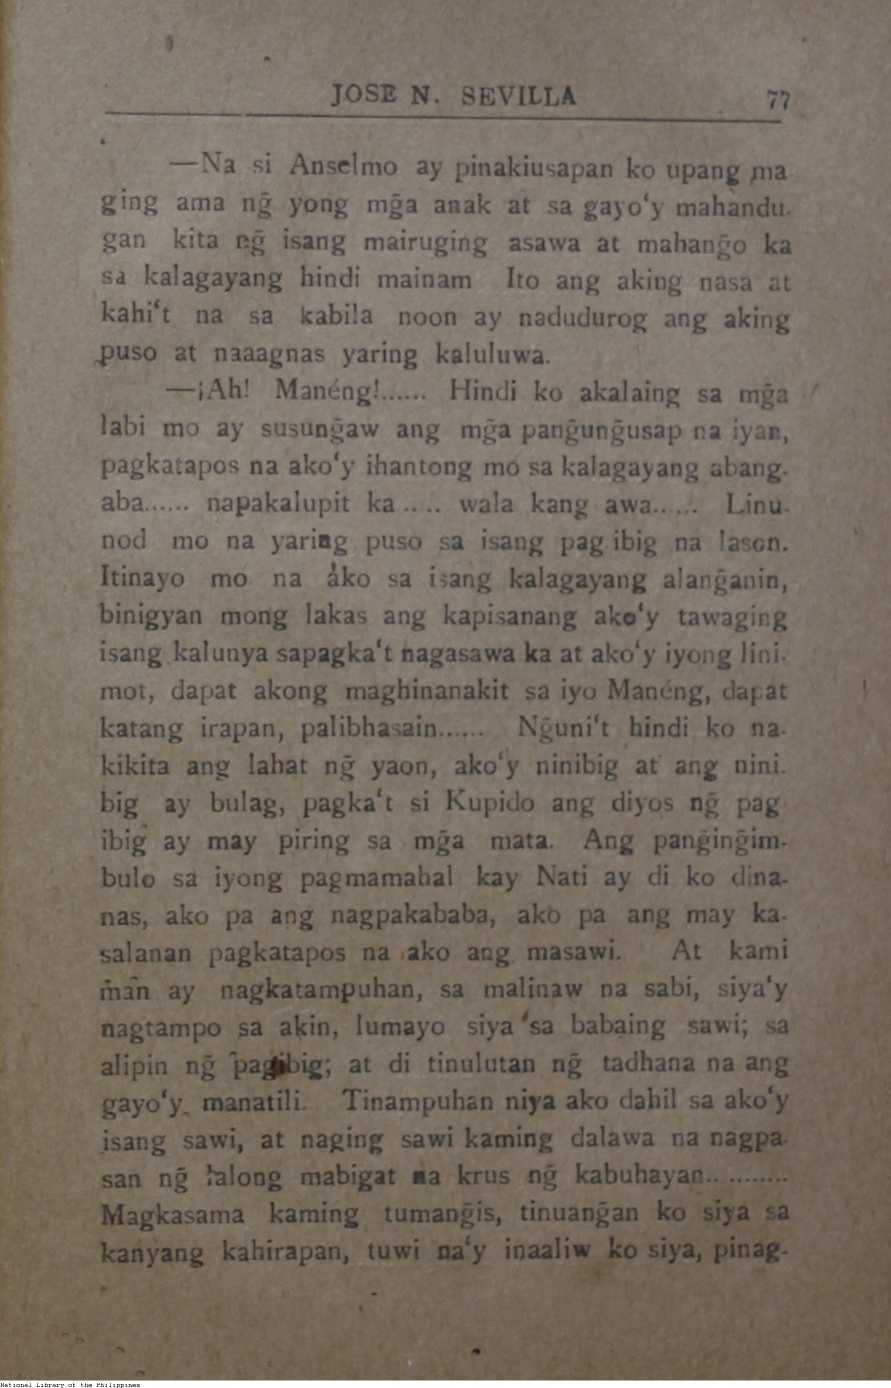 JOSE N. SEVILLA 77
—Na si Anselmo ay pinakiusapan ko upang ma
ging ama ng̃ yong mg̃a anak at sa gayo‘y mahandu-
gan kita ng̃ isang mairuging asawa at mahang̃o ka
sa kalagayang hindi mainam Ito ang aking nasa at
kahi‘t na sa kabila noon ay nadudurog ang aking
puso at naaagnas yaring kaluluwa.
—¡Ah! Manéng!...... Hindi ko akalaing sa mg̃a
labi mo ay susung̃aw ang mg̃a pang̃ung̃usap na iyan,
pagkatapos na ako‘y ihantong mo sa kalagayang abang-
aba...... napakalupit ka .... wala kang awa...... Linu-
nod mo na yaring puso sa isang pag ibig na lason.
Itinayo mo na ako sa isang kalagayang alang̃anin,
binigyan mong lakas ang kapisanang ako‘y tawaging
isang kalunya sapagka‘t nagasawa ka at ako‘y iyong lini-
mot, dapat akong maghinanakit sa iyo Manéng, dapat
katang irapan, palibhasain...... Ng̃uni‘t hindi ko na-
kikita ang lahat ng̃ yaon, ako‘y ninibig at ang nini-
big ay bulag, pagka‘t si Kupido ang diyos ng̃ pag
ibig ay may piring sa mg̃a mata. Ang pang̃ing̃im-
bulo sa iyong pagmamahal kay Nati ay di ko dina-
nas, ako pa ang nagpakababa, ako pa ang may ka-
salanan pagkatapos na ako ang masawi. At kami
man ay nagkatampuhan, sa malinaw na sabi, siya‘y
nagtampo sa akin, lumayo siya sa babaing sawi; sa
alipin ng̃ pagibig; at di tinulutan ng̃ tadhana na ang
gayo‘y manatili. Tinampuhan niya ako dahil sa ako‘y
isang sawi, at naging sawi kaming dalawa na nagpa-
san ng̃ lalong mabigat na krus ng̃ kabuhayan...........
Magkasama kaming tumang̃is, tinuang̃an ko siya sa
kanyang kahirapan, tuwi na‘y inaaliw ko siya, pinag-
National Library of the Philippines